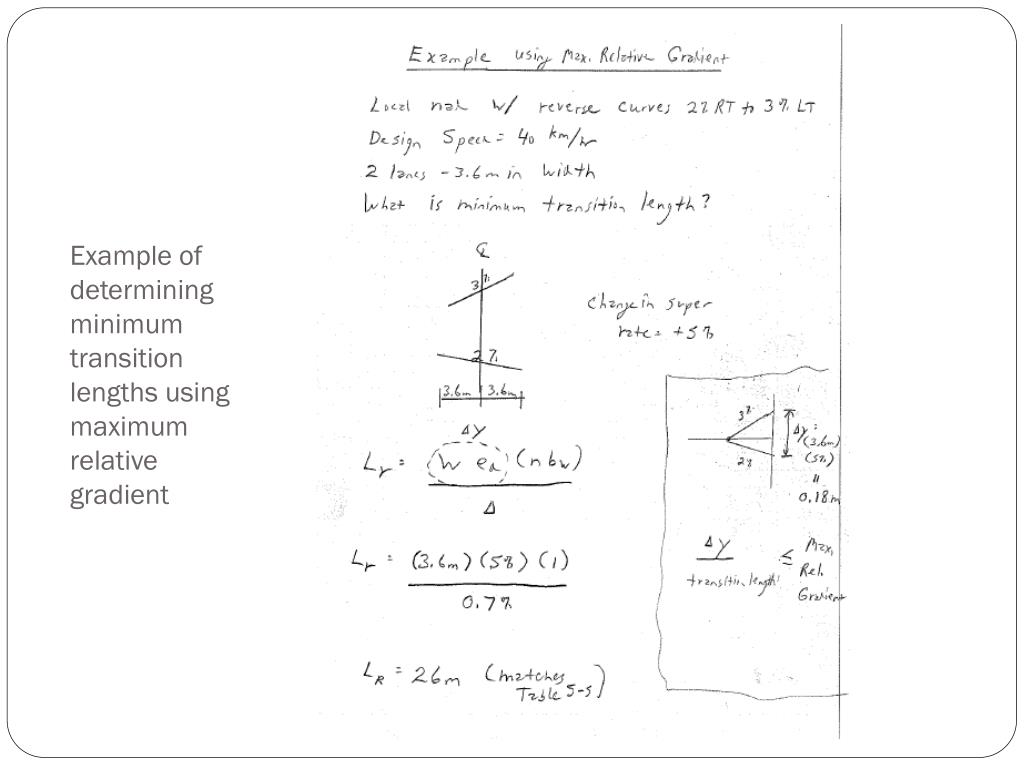 Example of
determining
minimum
transition
lengths using
maximum
relative
gradient
Example using Max. Relative Gradient
Local road w/ reverse curves 2% RT to 3% LT
Design Speed = 40 km/hr
2 lanes - 3.6m in width
What is minimum transition length?
℄
3%
2%
3.6m 3.6m
Change in super
rate = +5%
ΔY
Lr = (w ed) (n bw)
Δ
Lr = (3.6m) (5%) (1)
0.7%
LR = 26m (matches
Table 5-5)
3%
2%
ΔY =
(3.6m)
(5%)
=
0.18m
ΔY
transition length
≤ Max.
Rel.
Gradient